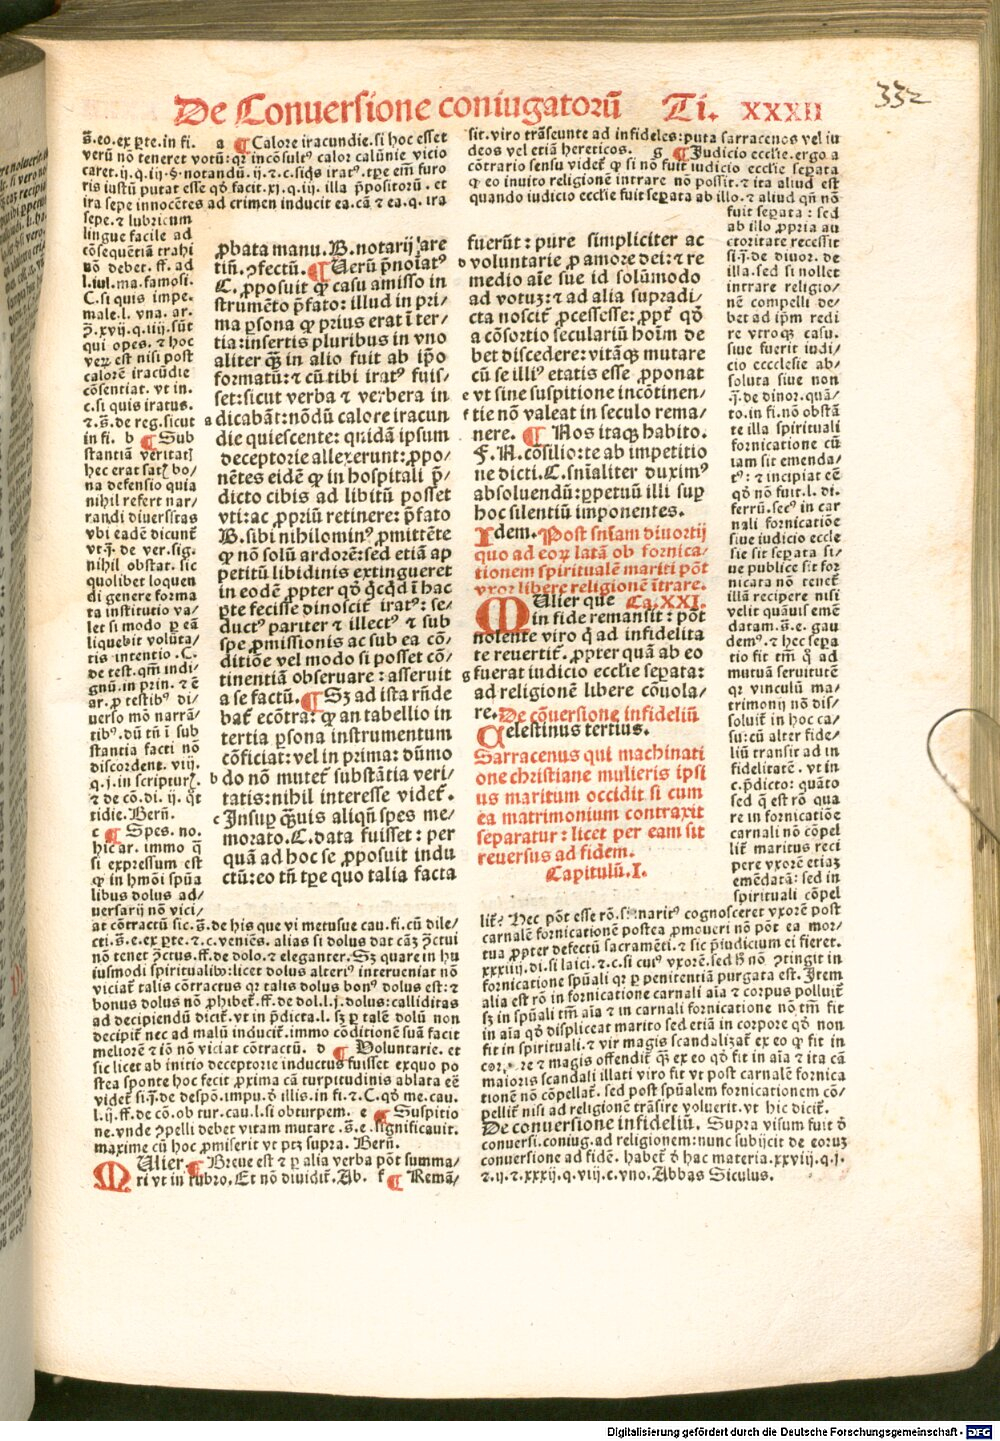 De Conuersione coniugatorū Ti. XXXII
332
s̄.eo.ex ꝑte.in fi. a ¶ Calore iracundie.si hoc esset
verū nō teneret votū: qꝛ incōsultꝰ calor calūnie vicio
caret.ij.q.iij.§.notandū.ij.⁊.c.siqͥs iratꝰ.
ira sepe innocētes ad crimen inducit ea.cā ⁊ ea.q. ira
sepe.⁊ lubricum
lingue facile ad
cōsequētiā trahi
nō debet. ff. ad
l.iul.ma.famosi.
C.si quis impe.
male.l. vna. ar.
qui opes. ⁊ hoc
verꝝ est nisi post
calorē iracūdie
cōsentiat. vt in.
c.si quis iratus.
⁊.s̄.de reg.sicut
in fi. b ¶ Sub
stantiā
hec erat bo/
na defensio quia
nihil refert nar/
randi diuersitas
vbi eadē dicunt᷑
vt.j̄.de ver.sig.
nihil obstat. sic
quolibet loquen
di genere forma
ta institutio va/
let si modo ꝑ eā
liquebit volūta/
tis intentio .C.
de test.qm̄ indi/
gnū.in prin. ⁊ ē
ar.ꝑ testibꝰ di/
uerso mō narrā/
tibꝰ.dū tn̄ ī sub
stantia facti nō
discordent. viij.
q.j.in scripturꝭ.
⁊ de cō.di. ij. qͦt
tidie.Bern̄.
c ¶ Spes. no.
hic ar. immo ꝙ
si expressum est
ꝙ in hmōi spūa
libus dolus ad/
uersarij nō vici/
at cōtractū sic.s̄.de his que vi metusue cau.fi.cū dile/
cti.s̄.e.ex ꝑte.⁊.c.veniēs. alias si dolus dat cāꝫ ꝯctui
nō tenet ꝯctus.ff.de dolo.⁊ eleganter.Sꝫ quare in hu
iusmodi spiritualibꝰ:licet dolus alteriꝰ interueniat nō
viciat᷑ talis cōtractus qꝛ talis dolus bonꝰ dolus est:⁊
bonus dolus nō ꝓhibet᷑.ff.de dol.l.j.dolus:calliditas
ad decipiendū dicit᷑.vt in p̄dicta.l. sꝫ ꝑ talē dolū non
decipit᷑ nec ad malū inducit᷑.immo cōditionē suā facit
meliorē ⁊ iō nō viciat cōtractū. d ¶ Voluntarie. et
sic licet ab initio deceptorie inductus fuisset exquo po
stea sponte hoc fecit ꝓxima cā turpitudinis ablata eē
videt᷑ si.j̄.de despō.impu.ꝺ illis.in fi.⁊.C.qͦ me.cau.
l.ij.ff.de cō.ob tur.cau.l.si obturpem. e ¶ Suspitio
ne.vnde ꝯpelli debet vitam mutare .s̄.e.significauit.
maxime cū hoc ꝓmiserit vt ptꝫ supra. Bern̄.
MUlier.¶ Breue est ⁊ ꝑ alia verba pōt summa/
ri vt in rubro.Et nō diuidit᷑.Ab. f ¶ Remā/
ꝓbata manu.B.notarij are
tiñ.ꝯfectū.¶ Verū p̄noīatꝰ
C.ꝓposuit ꝙ casu amisso in
strumēto p̄fato: illud in pri/
ma ꝑsona ꝙ prius erat ī ter/
tia:insertis pluribus in vno
aliter q̄ꝫ in alio fuit ab ip̄o
formatū:⁊ cū tibi iratꝰ fuis/
set:sicut verba ⁊ verbera in
a dicabāt:nōdū calore iracun
die quiescente: quidā ipsum
deceptorie allexerunt:ꝓpo/
nētes eidē ꝙ in hospitali p̄/
dicto cibis ad libitū posset
vti:ac ꝓpriū retinere: p̄fato
B.sibi nihilominꝰ ꝓmittēte
ꝙ nō solū ardorē:sed etiā ap
petitū libidinis extingueret
in eodē ꝓpter qͦ qͥcqͥd ī hac
ꝑte fecisse dinoscit᷑ iratꝰ: se/
ductꝰ pariter ⁊ illectꝰ ⁊ sub
spe ꝓmissionis ac sub ea cō/
ditiōe vel modo si posset cō/
tinentiā obseruare:asseruit
a se factū.¶ Sꝫ ad ista rn̄de
bat᷑ ecōtra: ꝙ an tabellio in
tertia ꝑsona instrumentum
cōficiat:vel in prima: dūmo
b do nō mutet᷑ substātia veri/
tatis:nihil interesse videt᷑.
c Insuꝑ q̄uis aliqū spes me/
morato.C.data fuisset: per
quā ad hoc se ꝓposuit indu
ctū:eo tn̄ tꝑe quo talia facta
sit. viro trāseunte ad infideles:puta sarracenos vel iu
deos vel etiā hereticos. g ¶ Judicio ecclīe.ergo a
cōtrario sensu videt᷑ ꝙ si nō fuit iudicio ecclīe seꝑata
ꝙ eo inuito religionē intrare nō possit.⁊ ita aliud est
quando iudicio ecclīe fuit seꝑata ab illo.⁊ aliud qn̄ nō
fuit seꝑata : sed
ab illo ꝓpria au
ctoritate recessit
si.j̄.de diuor. de
illa.sed si nollet
intrare religio/
nē compelli de/
bet ad ip̄m redi
re vtroqꝫ casu.
siue fuerit iudi/
cio ecccłesie ab/
soluta siue non
.j̄.de diuor.quā/
to.in fi.nō obstā
te illa spirituali
fornicatione cū
iam sit emenda/
tꝰ: ⁊ incipiat eē
qͦ nō fuit.l. di.
ferrū.secꝰ in car
nali fornicatiōe
siue iudicio eccle
sie sit seꝑata si/
ue publice sit for
nicata nō tenet᷑
illā recipere nisi
velit quāuis emē
datam.s̄.e. gau
demꝰ. ⁊ hec seꝑa
tio fit tm̄ qͦ ad
mutuā seruitutē
qꝛ vinculū ma/
trimonij nō dis/
soluit᷑ in hoc ca/
su:cū alter fide/
liū transit ad in
fidelitatē. vt in
c.p̄dicto: quāto
sed q̄ est rō qua
re in fornicatiōe
carnali nō cōpel
lit᷑ maritus reci
pere vxorē etiaꝫ
emēdatā: sed in
spirituali cōpel
fuerūt: pure simpliciter ac
d voluntarie ꝓ amore dei:⁊ re
medio aīe sue id solūmodo
ad votuꝫ:⁊ ad alia supradi/
cta noscit᷑ ꝓcessisse:ꝓpt᷑ qͦ
a cōsortio seculariū hoīm de
bet discedere:vitāqꝫ mutare
cū se illiꝰ etatis esse ꝓponat
e vt sine suspitione incōtinen/
f tie nō valeat in seculo rema/
nere. ¶ Nos itaqꝫ habito.
F.N.cōsilio:te ab impetitio
ne dicti.C.sn̄ialiter duximꝰ
absoluendū:ꝑpetuū illi suꝑ
hoc silentiū imponentes.
Idem.Post sn̄iam diuortij
quo ad eoꝝ latā ob fornica/
tionem spiritualē mariti pōt
vxor libere religionē ītrare.
MUlier que Ca.XXI.
in fide remansit: pōt
nolente viro qͥ ad infidelita
te reuertit᷑.ꝓpter quā ab eo
g fuerat iudicio ecclīe seꝑata:
ad religionē libere cōuola/
re.De cōuersione infideliū
Celestinus tertius.
Sarracenus qui machinati
one christiane mulieris ipsi
us maritum occidit si cum
ea matrimonium contraxit
separatur: licet per eam sit
reuersus ad fidem.
Capitulū.I.
lit᷑? Hec pōt esse rō. cognosceret vxorē post
carnalē fornicationē postea ꝓmoueri nō pōt ea mor/
tua ꝓpter defectū sacramēti.⁊ sic p̄iudicium ei fieret.
xxxiiij.di.si laici.⁊.c.si cuiꝰ vxorē.sed hͦ nō ꝯtingit in
fornicatione spūali qꝛ ꝑ penitentiā purgata est. Item
alia est rō in fornicatione carnali aīa ⁊ corpus polluit᷑
sꝫ in spūali tm̄ aīa ⁊ in carnali fornicatione nō tm̄ fit
in aīa qͦ displiceat marito sed etiā in corpore qͦ non
fit in spirituali.⁊ vir magis scandalizat᷑ ex eo ꝙ fit in
corpore ⁊ magis offendit᷑ q̄ꝫ ex eo qͦ fit in aīa ⁊ ita cā
maioris scandali illati viro fit vt post carnalē fornica
tionē nō cōpellat᷑. sed post spūalem fornicationem cō/
pellit᷑ nisi ad religionē trāsire voluerit.vt hic dicit᷑.
De conuersione infideliū. Supra visum fuit ꝺ
conuersi.coniug.ad religionem:nunc subijcit de eoruꝫ
conuersione ad fidē. habet᷑ ꝺ hac materia.xxviij.q.j.
⁊.ij.⁊.xxxij.q.viij.c.vno.Abbas Siculus.
Digitalisierung gefördert durch die Deutsche Forschungsgemeinschaft - DFG